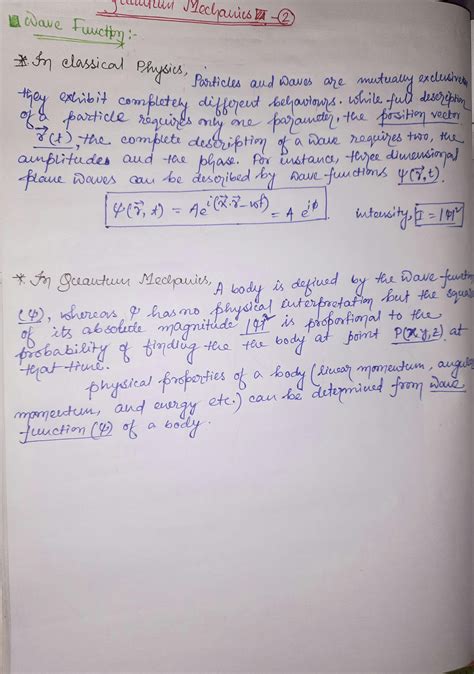 Quantum Mechanics VI - ②
■ Wave Function :-
* In classical Physics,
Particles and waves are mutually exclusive
they exhibit completely different behaviours. While full description
of a particle requires only one parameter, the position vector
r⃗(t), the complete description of a wave requires two, the
amplitudes and the phase. For instance, three dimensional
plane waves can be described by wave functions ψ(r⃗,t).
ψ(r⃗,t) = Ae^{i(k⃗.r⃗-ωt)} = A e^{iϕ} intensity, I = |ψ|²
* In Quantum Mechanics, A body is defined by the wave function
(ψ), whereas ψ has no physical interpretation but the square
of its absolute magnitude |ψ|² is proportional to the
probability of finding the the body at point P(x,y,z) at
that time.
physical properties of a body (linear momentum, angular
momentum, and energy etc.) can be determined from wave
function (ψ) of a body.